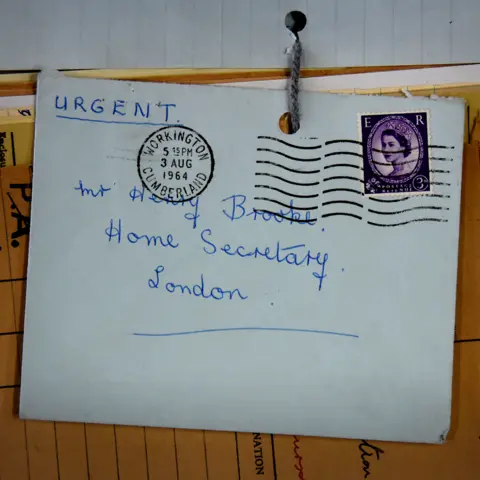 URGENT.
WORKINGTON
5 15PM
3 AUG
1964
CUMBERLAND
E R
POSTAGE
REVENUE
3D
Mr Henry Brooke.
Home Secretary.
London.
P.A.
NATION